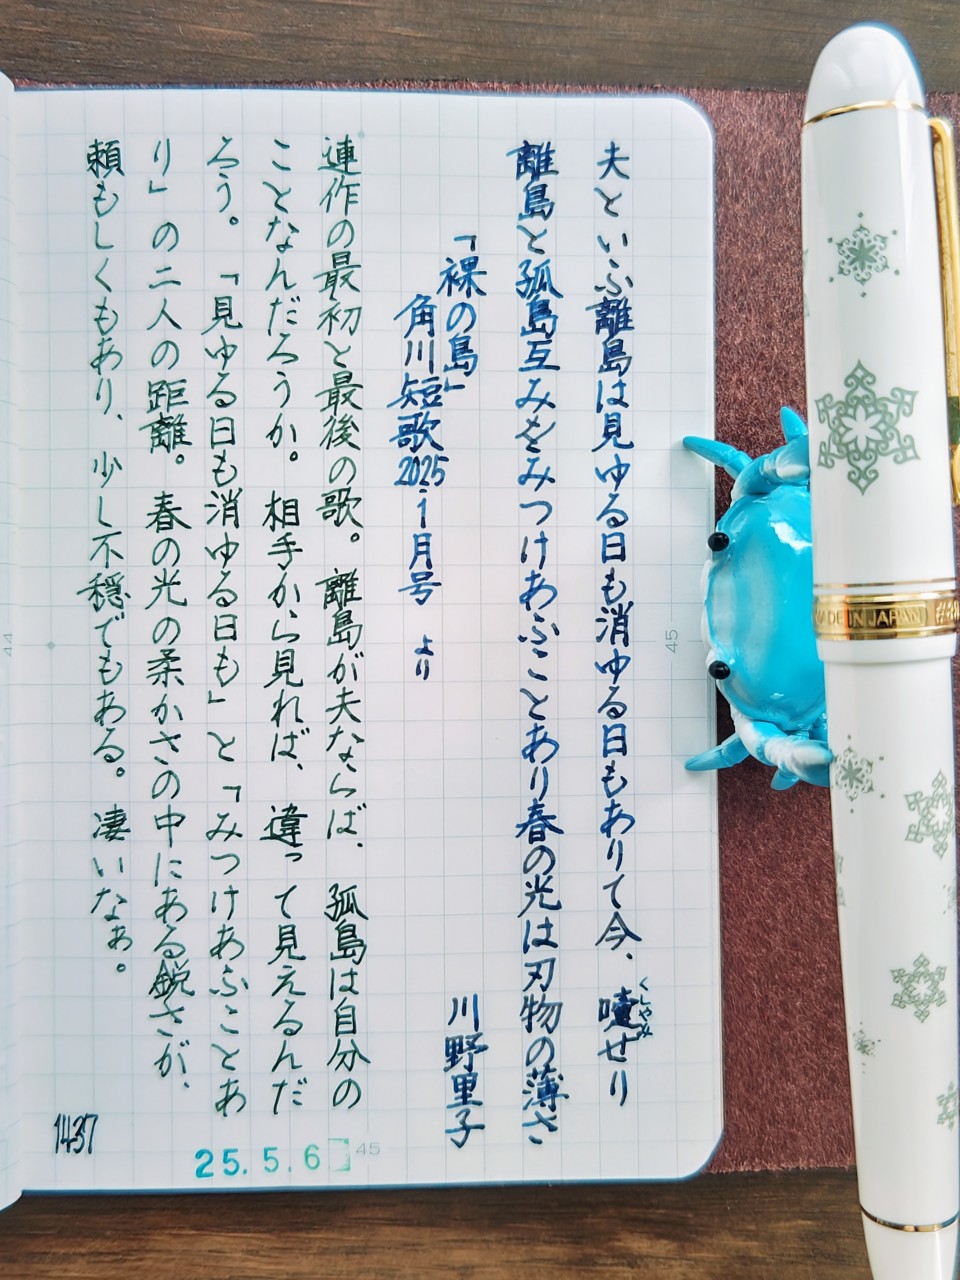 夫といふ離島は見ゆる日も消ゆる日もありて今、嚔せり
くしゃみ
離島と孤島互みをみつけあふことあり春の光は刃物の薄さ
「裸の島」 川野里子
角川短歌2025.1月号 より
連作の最初と最後の歌。離島が夫ならば、孤島は自分の
ことなんだろうか。相手から見れば、違って見えるんだ
ろう。「見ゆる日も消ゆる日も」と「みつけあふことあ
り」の二人の距離。春の光の柔かさの中にある鋭さが、
頼もしくもあり、少し不穏でもある。凄いなぁ。
1437
25.5.6
45
45
44
MADE IN JAPAN